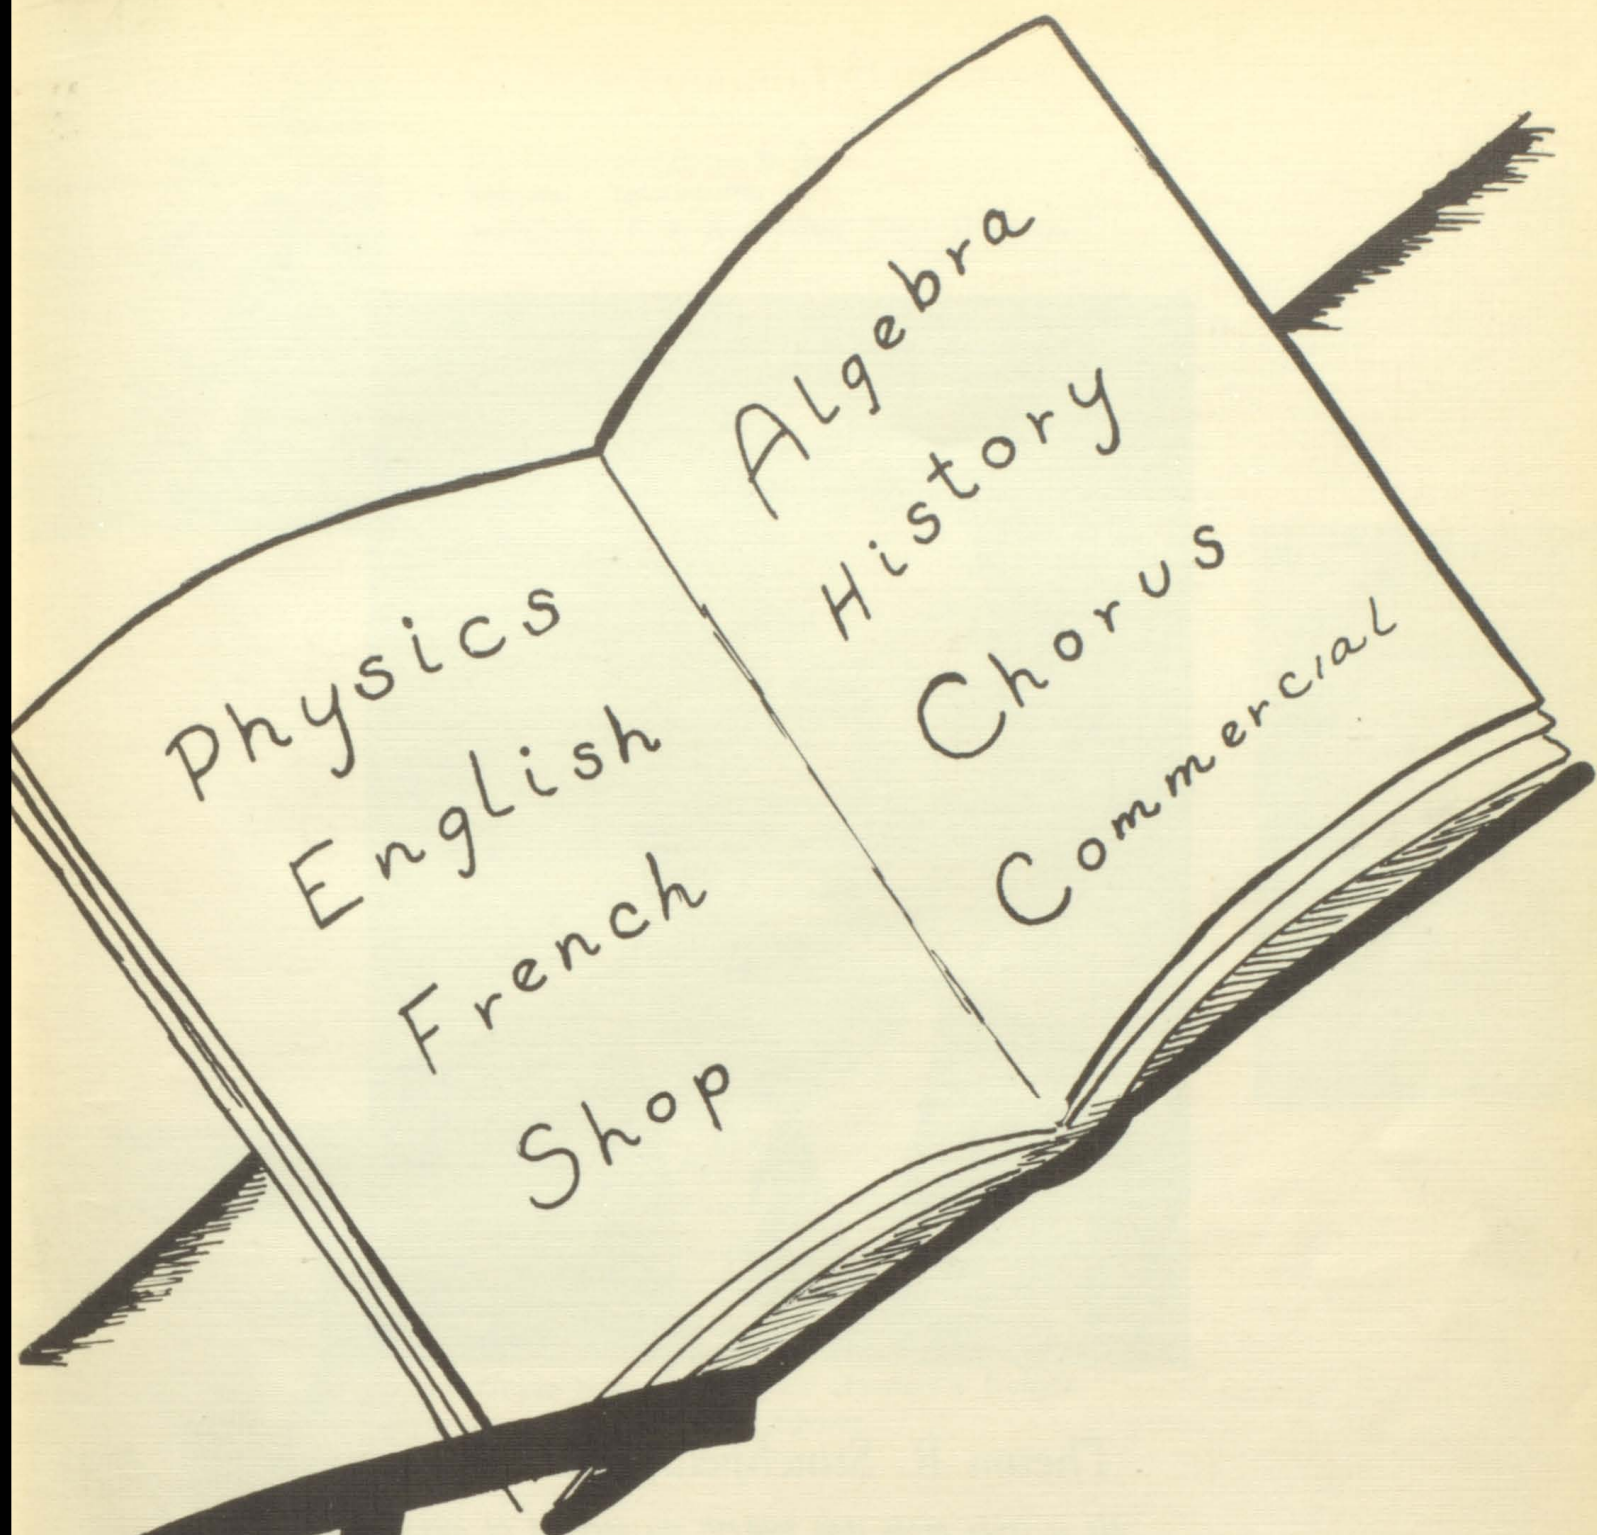 Physics
English
French
Shop
Algebra
History
Chorus
Commercial